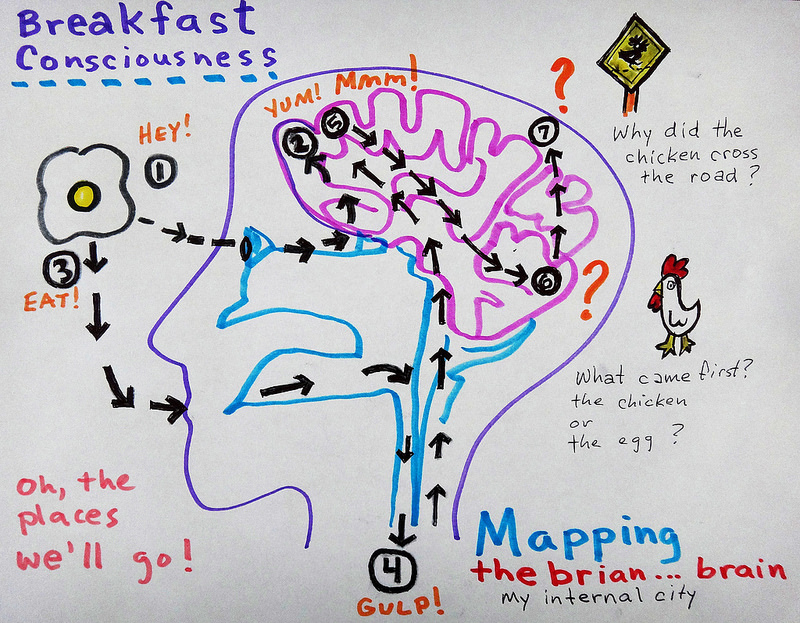 Breakfast
Consciousness
HEY!
1
YUM!
2
Mmm!
5
3
EAT!
4
GULP!
6
?
7
?
Why did the
chicken cross
the road?
What came first?
the chicken
or
the egg?
oh, the
places
we'll go!
Mapping
the brian... brain
My internal city